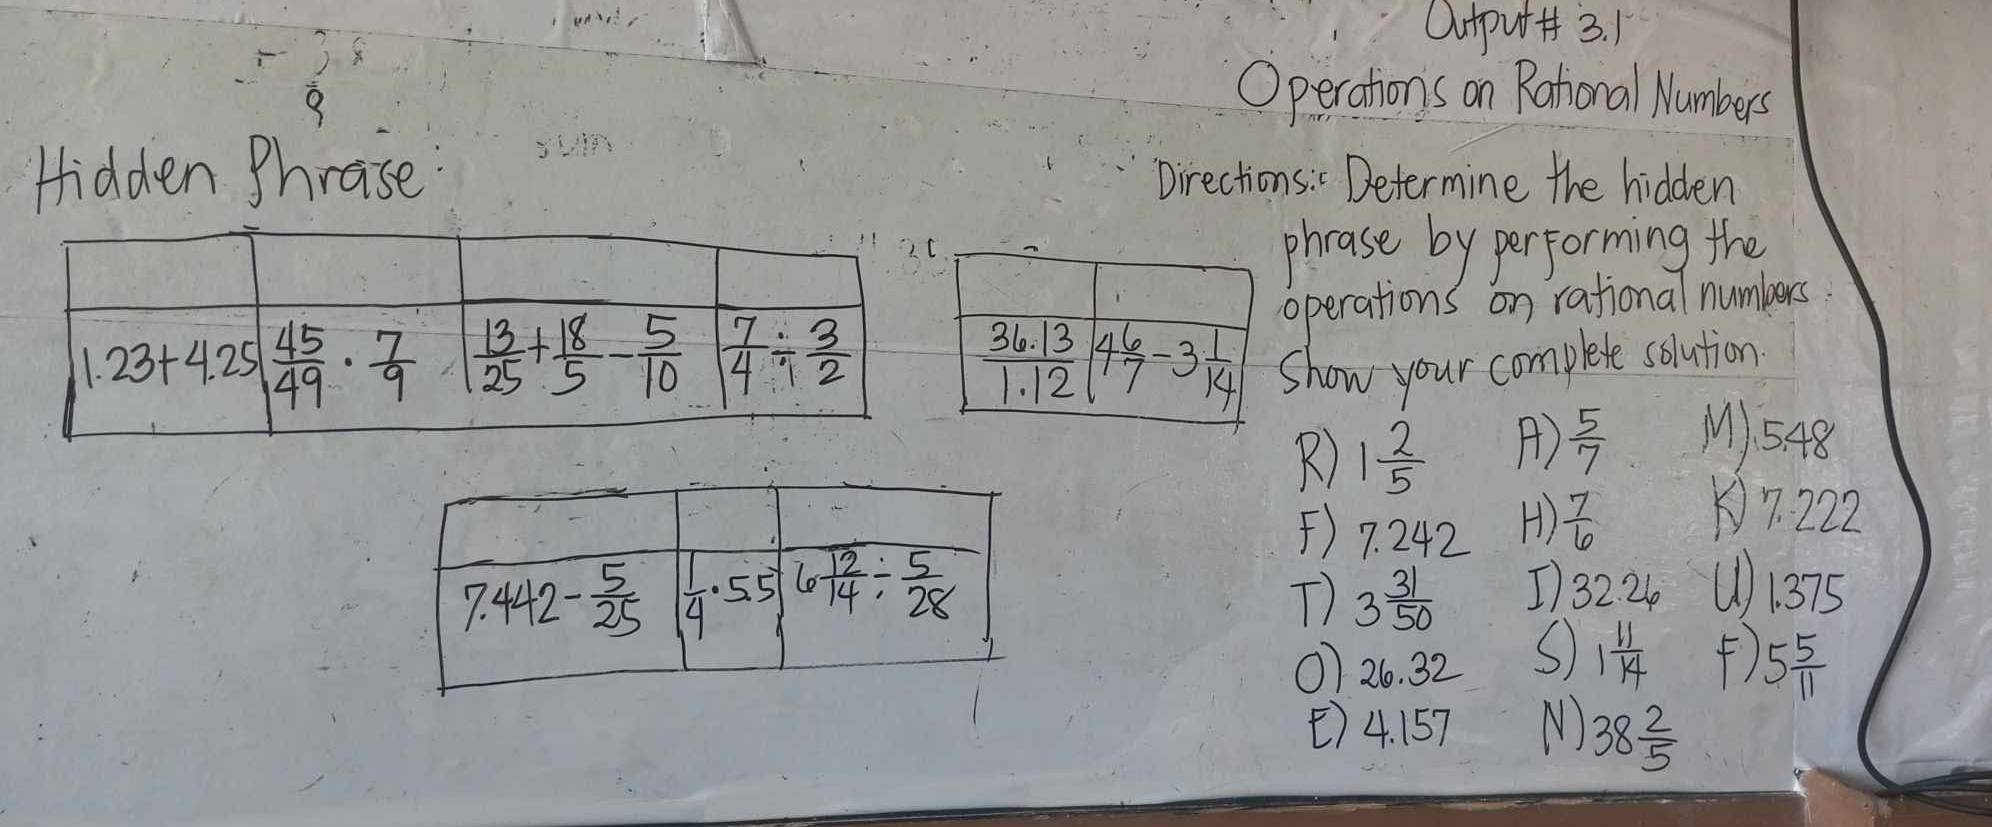 Output # 3.1
Operations on Rational Numbers
Hidden Phrase:
Directions: Determine the hidden
phrase by performing the
operations on rational numbers.
Show your complete solution.
1.23+4.25 | 45/49 · 7/9 | 13/25 + 18/5 - 5/10 | 7/4 ÷ 3/2
36.13/1.12 | 4 6/7 - 3 1/14
7.442 - 5/25 | 1/4 · 5.5 | 6 12/14 ÷ 5/28
R) 1 2/5 A) 5/7 M) 5.48
F) 7.242 H) 7/6 K) 7.222
T) 3 31/50 I) 32.26 U) 1.375
O) 26.32 S) 1 11/14 F) 5 5/11
E) 4.157 N) 38 2/5